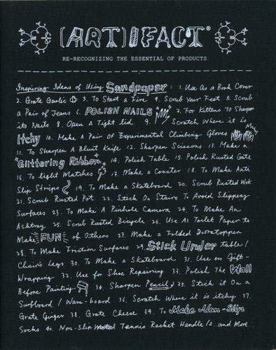 (ART)IFACT
RE-RECOGNIZING THE ESSENTIAL OF PRODUCTS
Inspiring Ideas of Using Sandpaper 1. Use As a Book Cover
2. Grate Garlic 3. To Start a Fire 4. Scrub Your Feet 5. Scrub
a Pair of Jeans 6. POLISH NAILS 7. For Kittens To Sharpen
its Nails 8. Open A Tight Lid 9. Scratch Where it is
Itchy 10. Make A Pair Of Experimental Climbing Gloves
11. To Sharpen A Blunt Knife 12. Sharpen Scissors 13. Make a
"Glittering Ribbon" 14. Polish Table 15. Polish Rusted Gate
16. To Light Matches 17. Make a Coaster 18. To Make Anti
Slip Strips 19. To Make a Skateboard 20. Scrub Rusted
21. Scrub Rusted Pot 22. Stick On Stairs To Avoid Slipping
Surfaces 23. To Make A Pinhole Camera 24. To Make An
25. Scrub Rusted 26. Use As Toilet Paper to
Make FUN of Others 27. Make a Folded
28. To Make Friction Surfaces 29. Stick Under Table /
Chairs Legs 30. To Make a Skateboard 31. Use as Gift-
Wrapping 32. Use for Shoe Repairing 33. Polish The Wall
Before Painting 34. Sharpen Pencil 35. Stick it On a
Surfboard / 36. Scratch Where it is itchy 37.
Grate Ginger 38. Grate Cheese 39. To Make Non-Slip
Socks 40. Non-Slip Tennis Racket Handle & and More